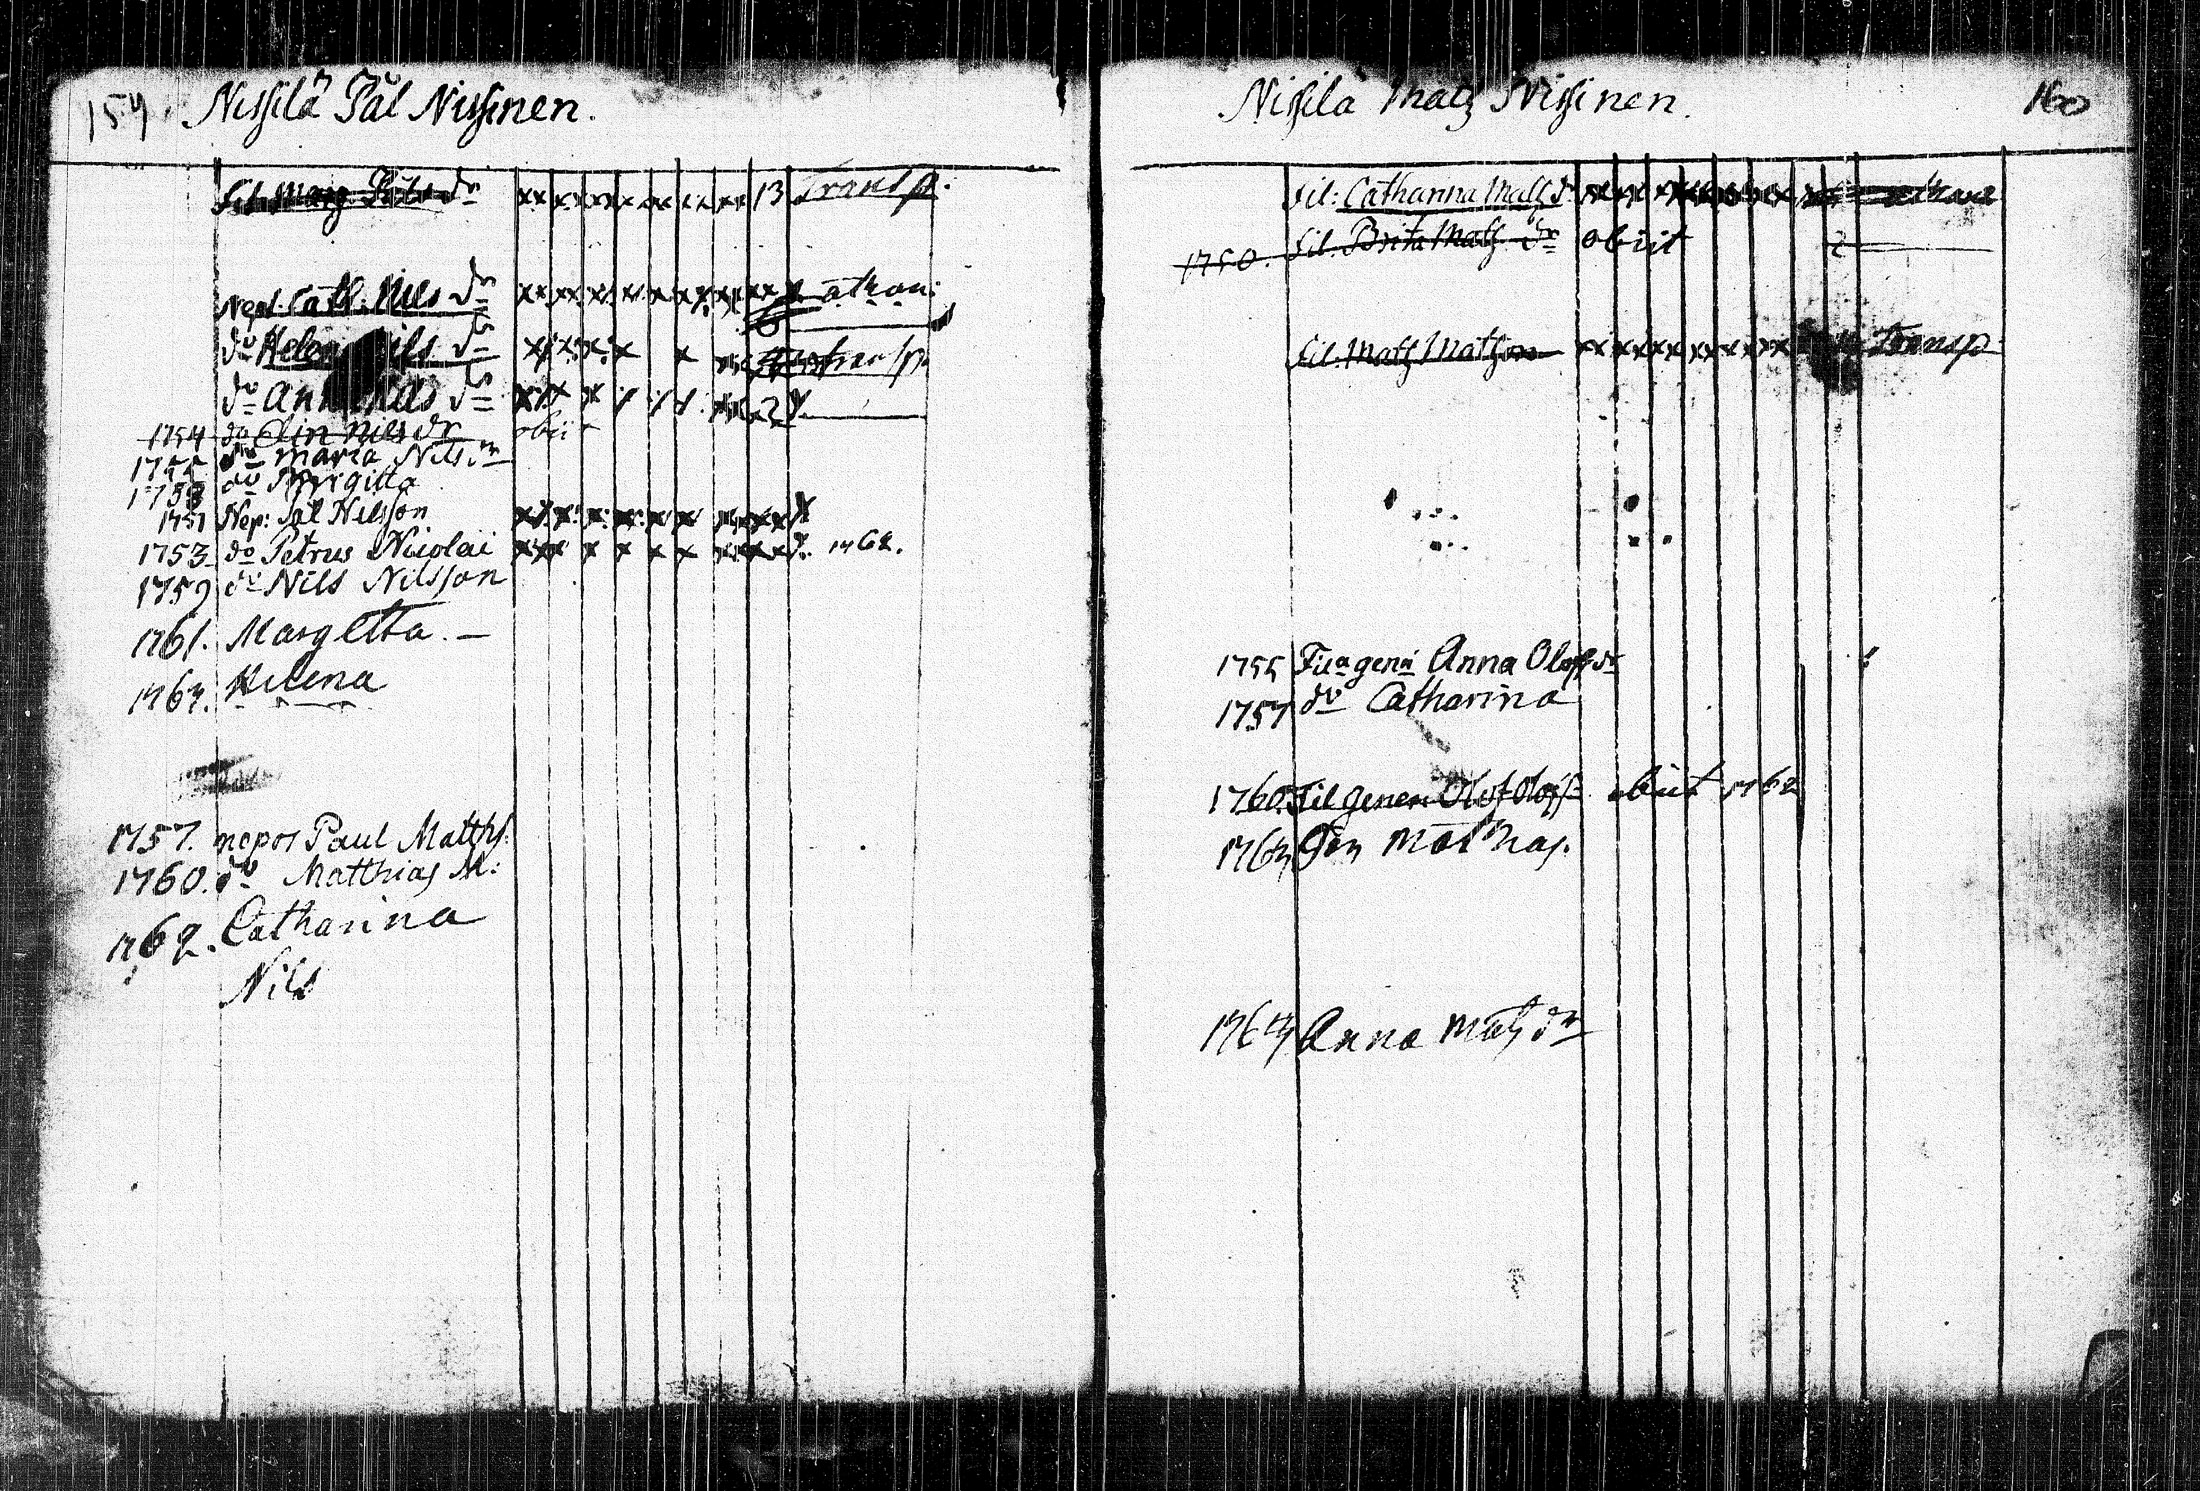 159. Nissilä Pål Nissinen.
fil. Marg Påls dr xx xx xx x xx xx xx 13 Transp.
Nept. Cath. Nils dr xx xx x x x xx xx xx
do Helen Nils dr
do Anna Nils dr
1754 do Elin Nils dr obiit
1755 do Maria Nils dr
1758 do Birgitta
1751 Nep: Pål Nilsson
1753 do Petrus Nicolai 1762.
1759 do Nils Nilsson
1761. Margetta. —
1764. Helena
1757. nepos Paul Matths:
1760. do Matthias M:
1762. Catharina
Nils
Nissilä Matz Nissinen. 160
fil: Catharina Matz dr
1750. fil. Brita Matz dr obiit 2
fil. Matz Matzson Transp
1755 Fil a gena Anna Olofsdr
1757 do Catharina
1760. Fil gener Olof Olofss obiit 1762
1763 Mathas.
1763 Anna Matz dr